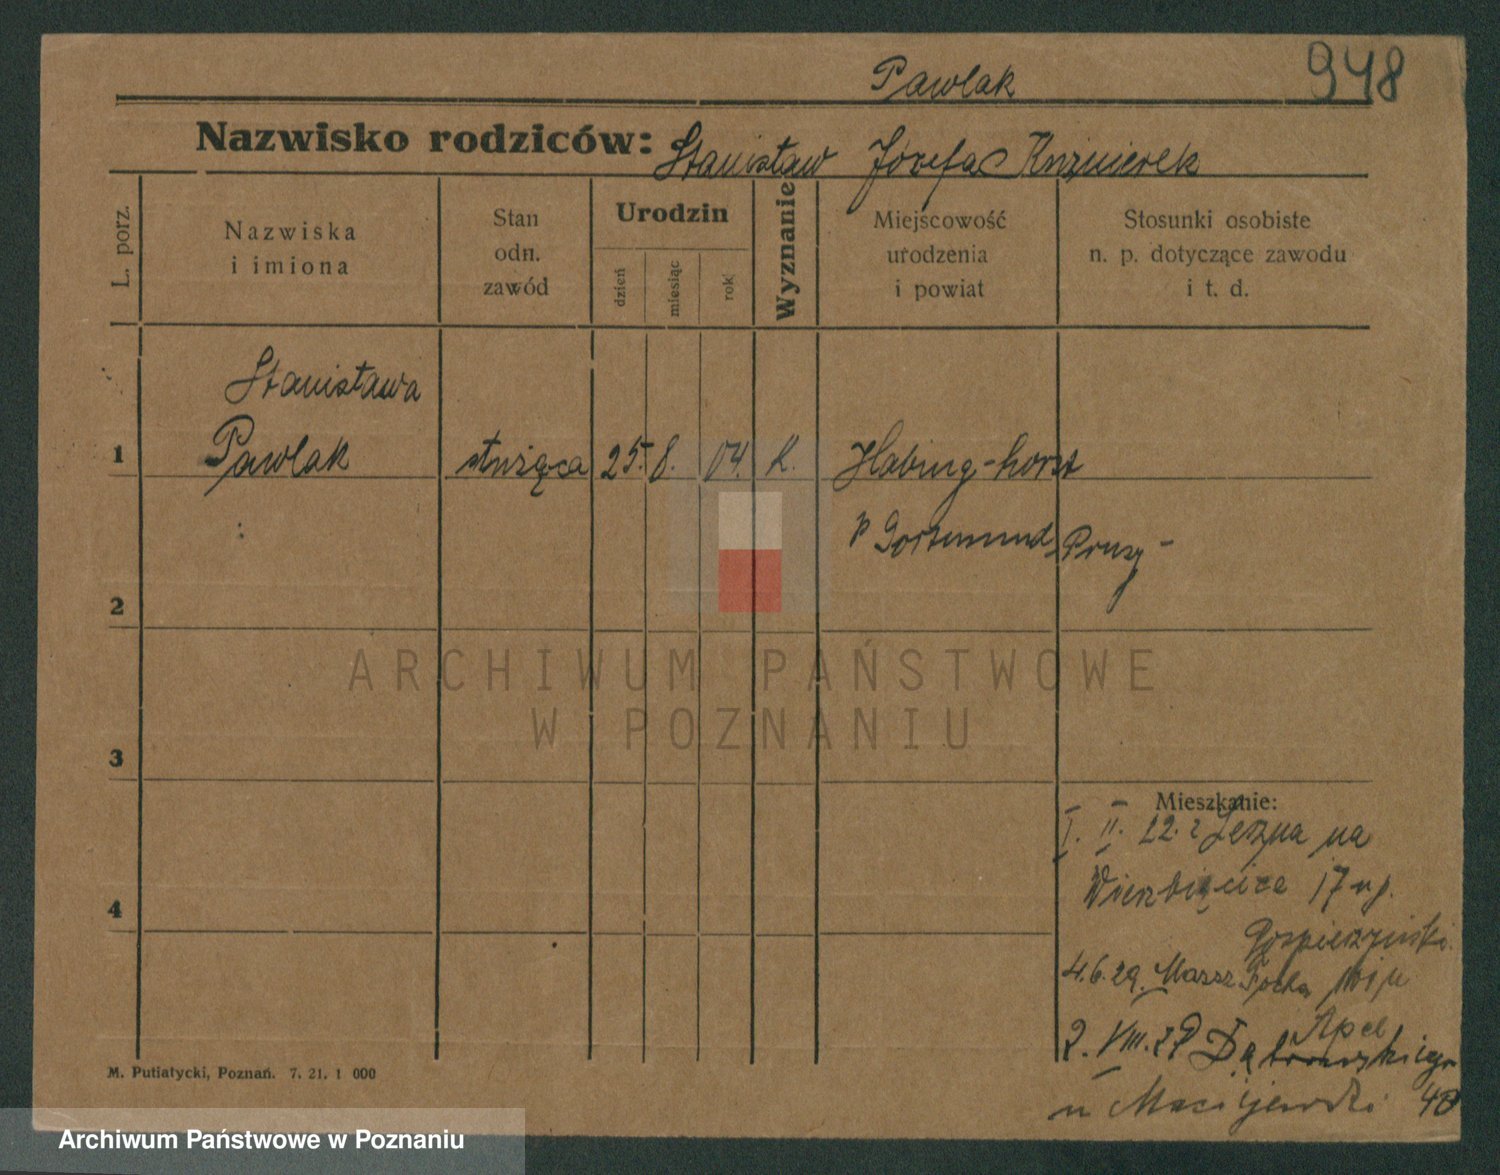 Pawlak
948
Nazwisko rodziców: Stanisław Józefa Kuźmierek
L. porz.
Nazwiska
i imiona
Stan
odn.
zawód
Urodzin
dzień
miesiąc
rok
Wyznanie
Miejscowość
urodzenia
i powiat
Stosunki osobiste
n. p. dotyczące zawodu
i t. d.
Stanisława
1 Pawlak służąca 25. 8. 04. K. Habing-horst
p Dortmund Prusy
2
ARCHIWUM PAŃSTWOWE
W POZNANIU
3
Mieszkanie:
I. II. 22. z Leszna na
Wierzbięcice 17 u p.
4
Pospieszyński
4.6.29. Marsz. Focha
Apel
2. VIII. 29 Dąbrowskiego
u Maciejewski 40
M. Putiatycki, Poznań. 7. 21. 1 000
Archiwum Państwowe w Poznaniu